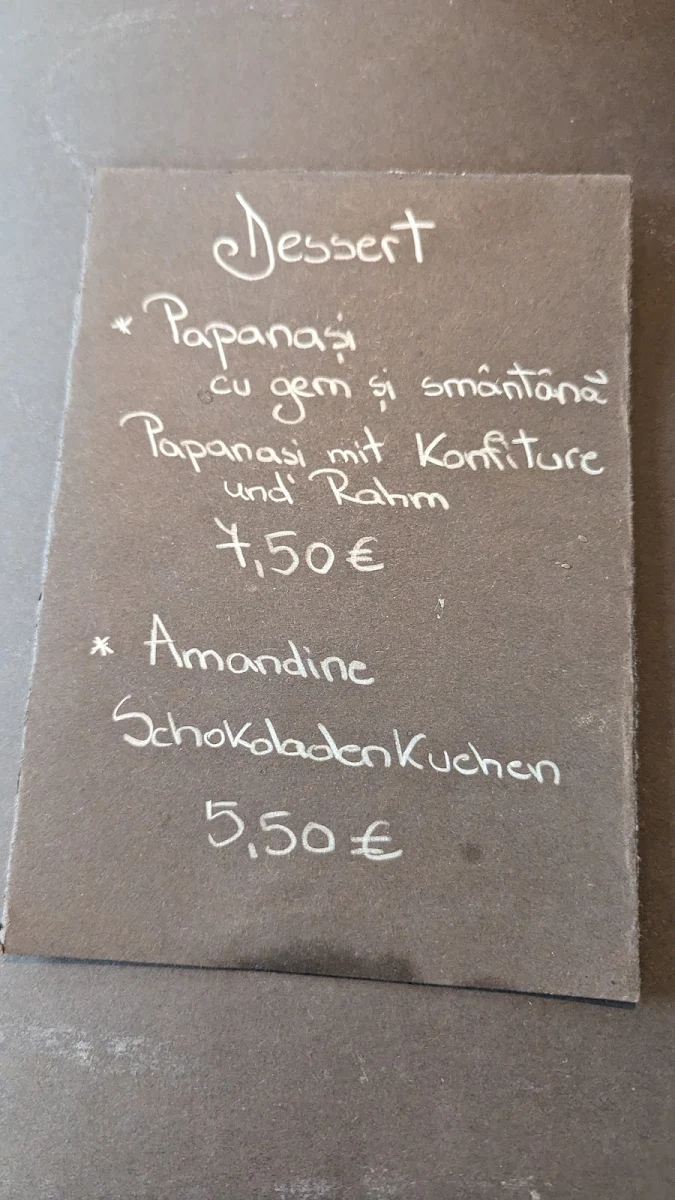 Dessert
* Papanași
cu gem și smântână
Papanasi mit Konfiture
und Rahm
7,50 €
* Amandine
Schokoladenkuchen
5,50 €